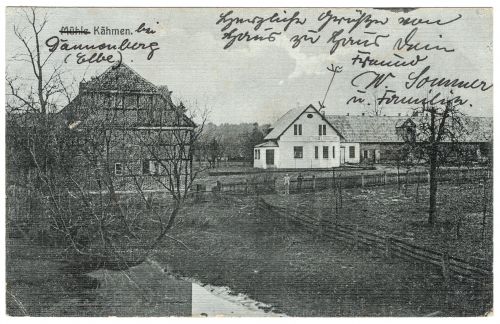 Mühle Kähmen. bei
Dannenberg
(Elbe)
Herzliche Grüße von
Haus zu Haus Dein
Freund
W. Sommer
u. Familie.